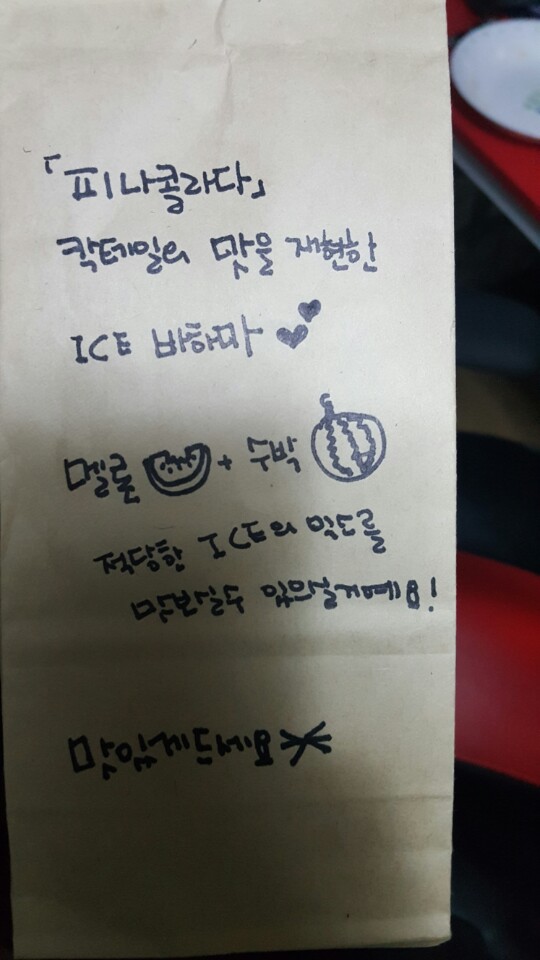 「피나콜라다」
칵테일의 맛을 재현한
ICE 바하마
멜론 + 수박
적당한 ICE의 밀도를
맛보실수 있으실거예요!
맛있게드세요